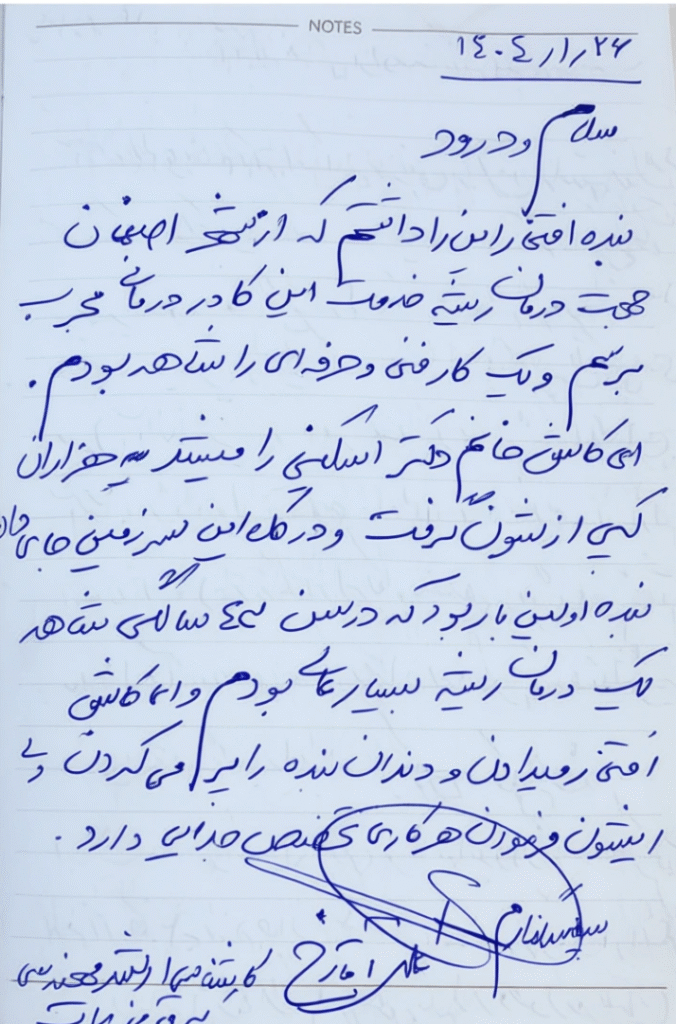 NOTES
۱۴۰۴/۱/۲۶
سلام و درود
بنده افتخار این را داشتم که از شهر اصفهان
جهت درمان ریشه خدمت این کادر درمانی مجرب
برسم و یک کار فنی و حرفه ای را شاهد بودم.
ای کاش خانم دکتر اسکنی را میشد به هزاران
کپی ازشون گرفت و در کل این سرزمین جای داد
بنده اولین بار بود که در سن ۴۶ سالگی شاهد
یک درمان ریشه بسیار عالی بودم و ای کاش
افتخار میدادن و دندان بنده را پر می کردن ولی
ایشون فرمودن هر کاری تخصص جدایی دارد.
سپاسگذارم
کارشناسی ارشد مهندسی